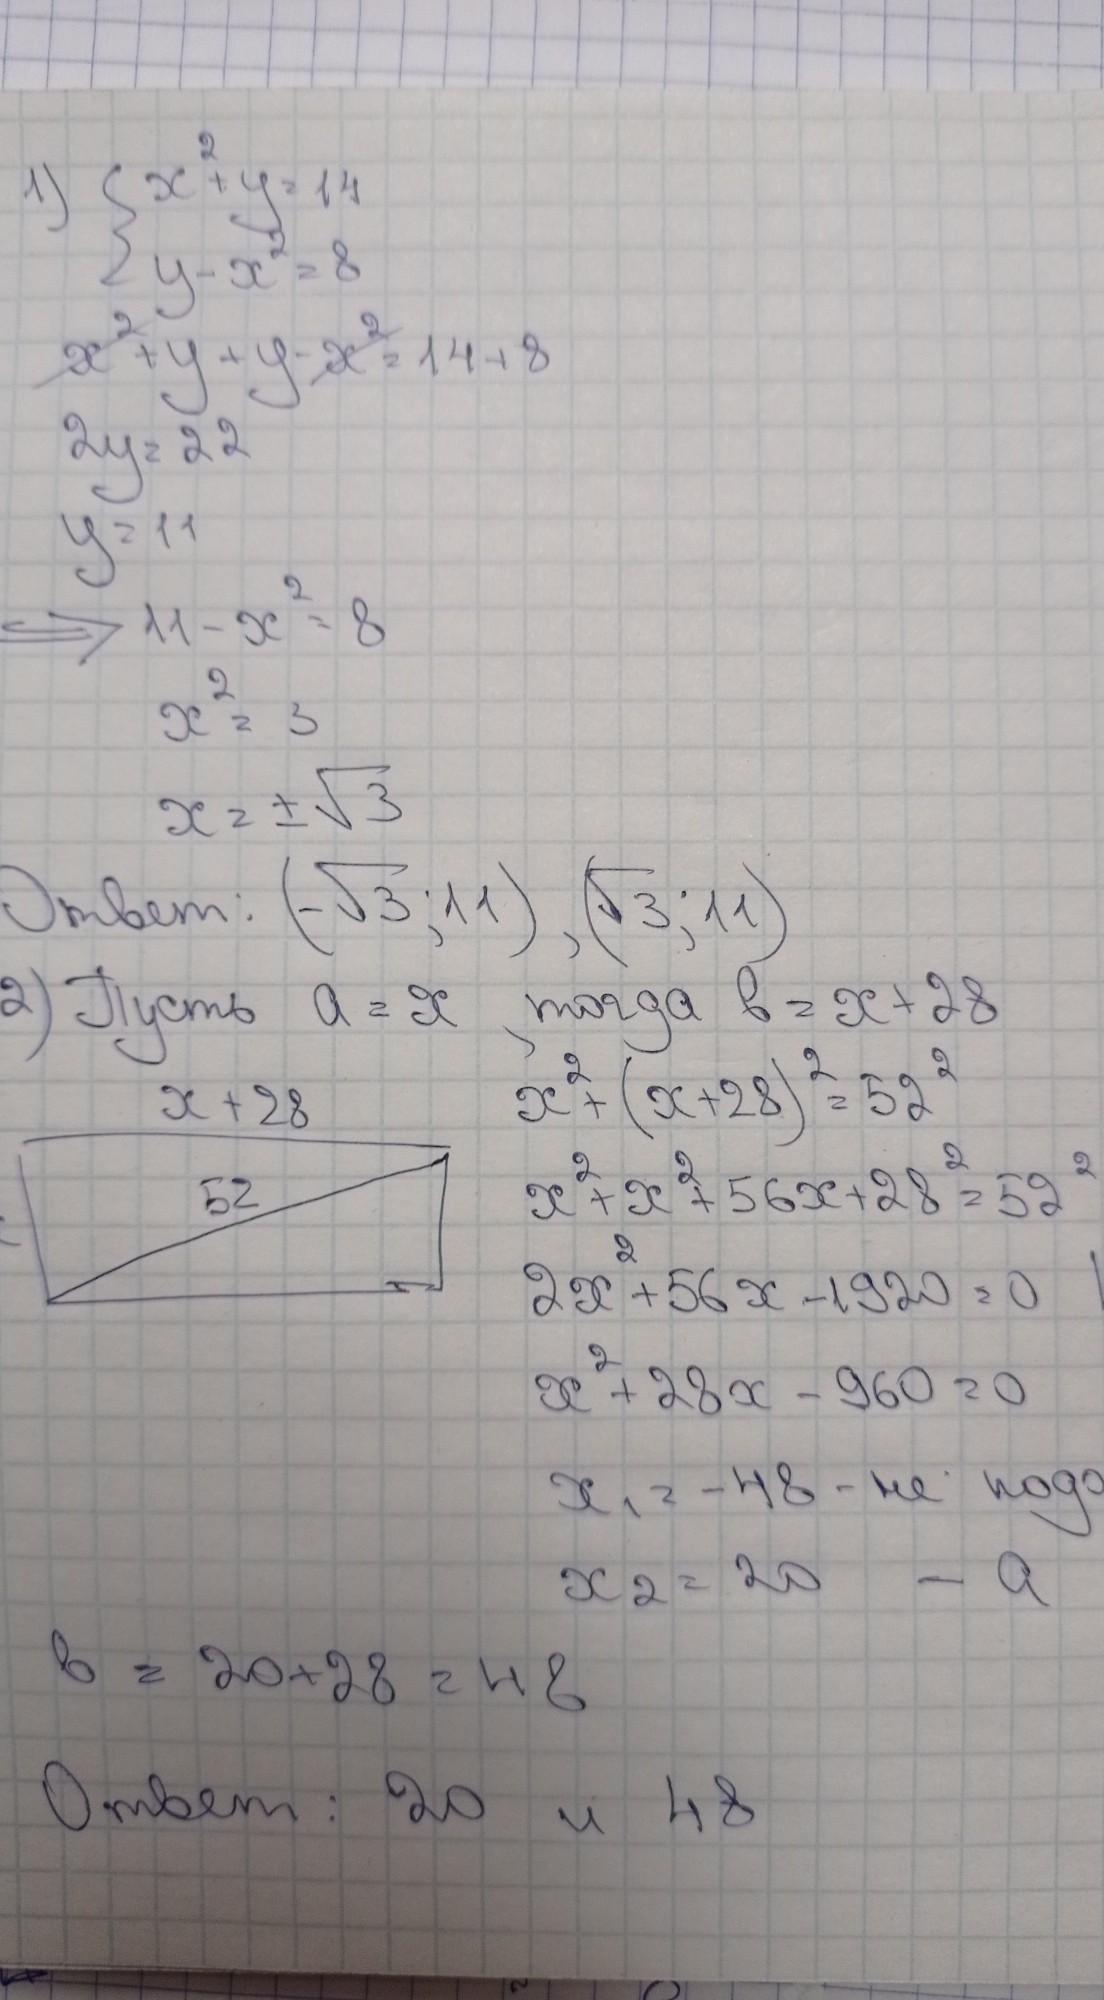 1) { x² + y = 14
y - x² = 8
x² + y + y - x² = 14 + 8
2y = 22
y = 11
⇒ 11 - x² = 8
x² = 3
x = ±√3
Ответ: (-√3; 11), (√3; 11)
2) Пусть a = x, тогда в = x + 28
x + 28
52
x² + (x+28)² = 52²
x² + x² + 56x + 28² = 52²
2x² + 56x - 1920 = 0
x² + 28x - 960 = 0
x₁ = -48 - не подо
x₂ = 20 - a
в = 20 + 28 = 48
Ответ: 20 и 48